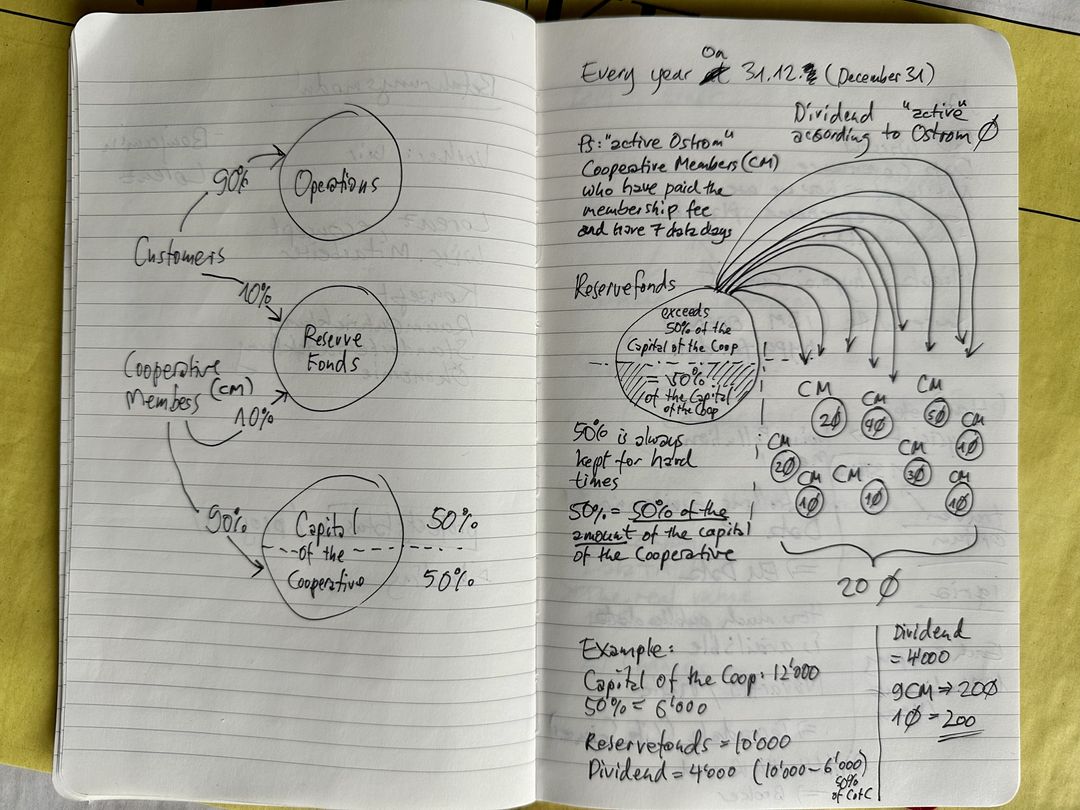 90%
Operations
Customers
10%
Reserve
Fonds
Cooperative
Members (CM)
10%
90%
Capital
of the
Cooperative
50%
50%
Every year On 31.12. (December 31)
Dividend "active"
according to Ostrom Ø
Ps: "active Ostrom"
Cooperative Members (CM)
who have paid the
membership fee
and have 7 data days
Reservefonds
exceeds
50% of the
Capital of the Coop
= 50%
of the Capital
of the Coop
50% is always
kept for hard
times
50% = 50% of the
amount of the capital
of the Cooperative
CM
2Ø
CM
4Ø
CM
5Ø
CM
1Ø
CM
2Ø
CM
3Ø
CM
1Ø
CM
1Ø
CM
1Ø
20 Ø
Example:
Capital of the Coop: 12'000
50% = 6'000
Reservefonds = 10'000
Dividend = 4'000 (10'000 – 6'000)
50%
of CotC
Dividend
= 4'000
9CM ⇒ 20Ø
1Ø = 200